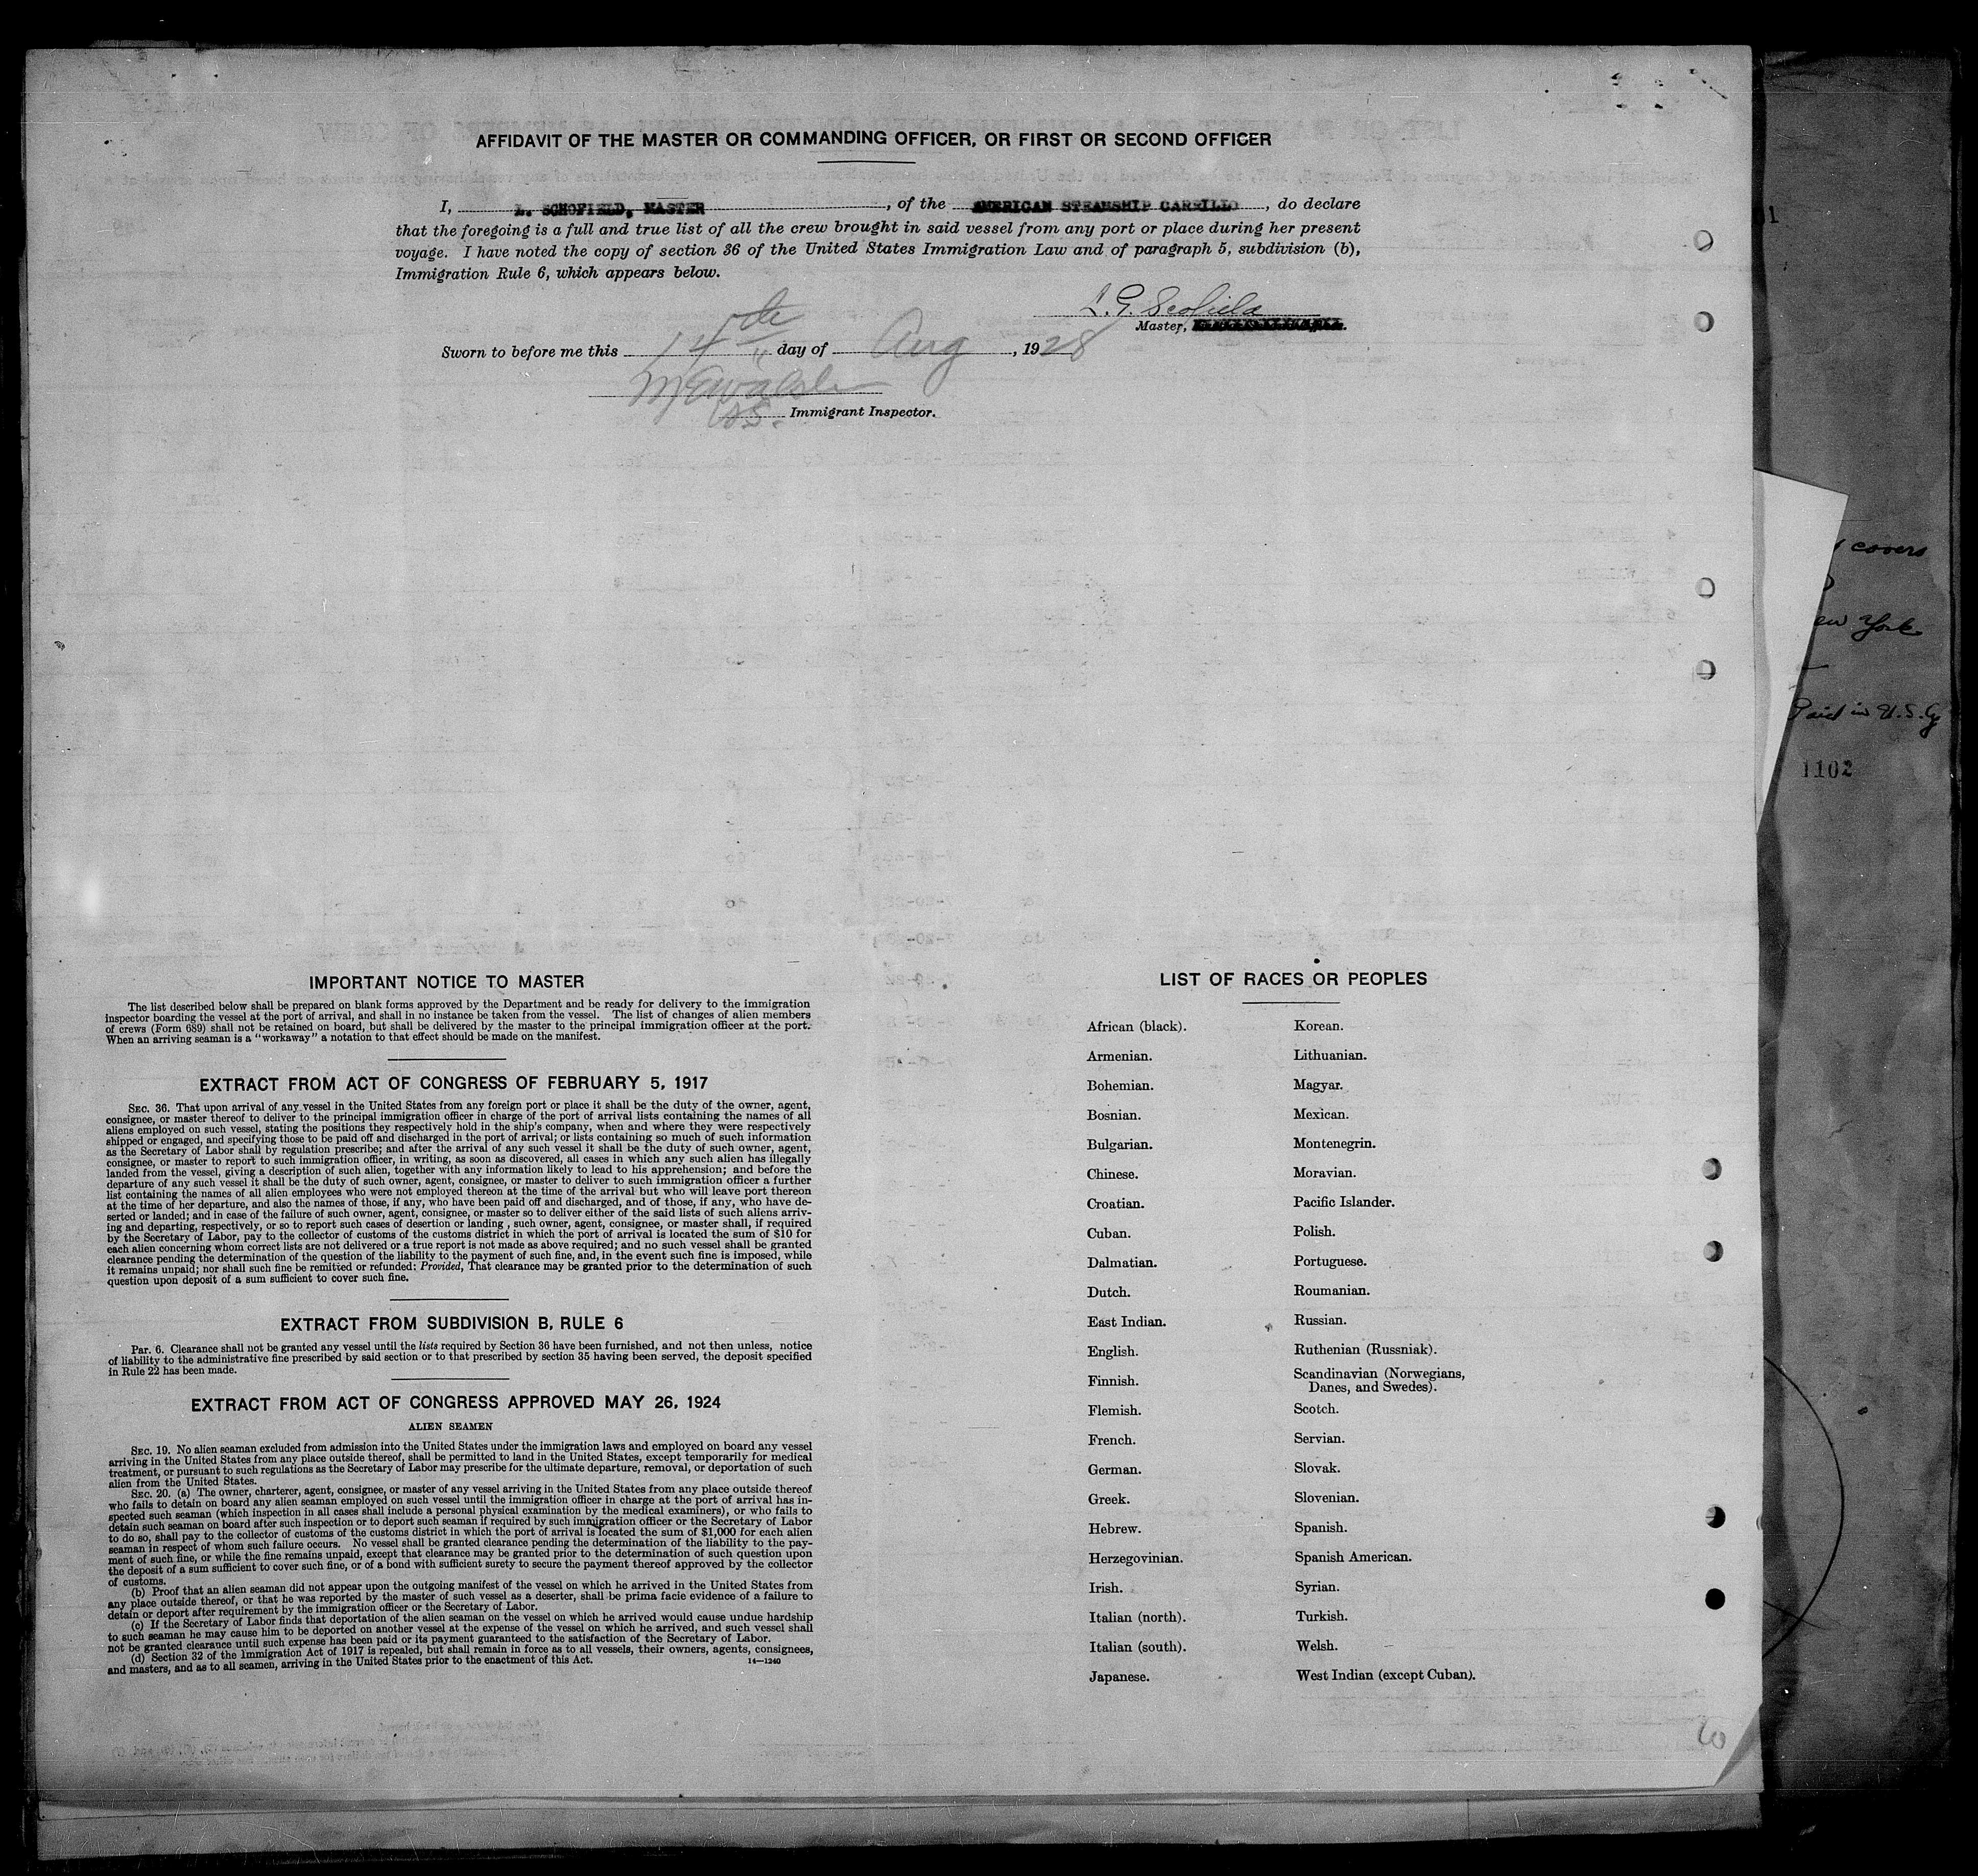 AFFIDAVIT OF THE MASTER OR COMMANDING OFFICER, OR FIRST OR SECOND OFFICER
I, L. SCHOFIELD, MASTER, of the AMERICAN STEAMSHIP CARRILLO, do declare
that the foregoing is a full and true list of all the crew brought in said vessel from any port or place during her present
voyage. I have noted the copy of section 36 of the United States Immigration Law and of paragraph 5, subdivision (b),
Immigration Rule 6, which appears below.
L. G. Scofield
Master,
Sworn to before me this 14th day of Aug, 1928
Immigrant Inspector.
covers
New York
Paid in U.S. Cy
1102
IMPORTANT NOTICE TO MASTER
The list described below shall be prepared on blank forms approved by the Department and be ready for delivery to the immigration
inspector boarding the vessel at the port of arrival, and shall in no instance be taken from the vessel. The list of changes of alien members
of crews (Form 689) shall not be retained on board, but shall be delivered by the master to the principal immigration officer at the port.
When an arriving seaman is a "workaway" a notation to that effect should be made on the manifest.
EXTRACT FROM ACT OF CONGRESS OF FEBRUARY 5, 1917
SEC. 36. That upon arrival of any vessel in the United States from any foreign port or place it shall be the duty of the owner, agent,
consignee, or master thereof to deliver to the principal immigration officer in charge of the port of arrival lists containing the names of all
aliens employed on such vessel, stating the positions they respectively hold in the ship's company, when and where they were respectively
shipped or engaged, and specifying those to be paid off and discharged in the port of arrival; or lists containing so much of such information
as the Secretary of Labor shall by regulation prescribe; and after the arrival of any such vessel it shall be the duty of such owner, agent,
consignee, or master to report to such immigration officer, in writing, as soon as discovered, all cases in which any such alien has illegally
landed from the vessel, giving a description of such alien, together with any information likely to lead to his apprehension; and before the
departure of any such vessel it shall be the duty of such owner, agent, consignee, or master to deliver to such immigration officer a further
list containing the names of all alien employees who were not employed thereon at the time of the arrival but who will leave port thereon
at the time of her departure, and also the names of those, if any, who have been paid off and discharged, and of those, if any, who have de-
serted or landed; and in case of the failure of such owner, agent, consignee, or master so to deliver either of the said lists of such aliens arriv-
ing and departing, respectively, or so to report such cases of desertion or landing, such owner, agent, consignee, or master shall, if required
by the Secretary of Labor, pay to the collector of customs of the customs district in which the port of arrival is located the sum of $10 for
each alien concerning whom correct lists are not delivered or a true report is not made as above required; and no such vessel shall be granted
clearance pending the determination of the question of the liability to the payment of such fine, and, in the event such fine is imposed, while
it remains unpaid; nor shall such fine be remitted or refunded: Provided, That clearance may be granted prior to the determination of such
question upon deposit of a sum sufficient to cover such fine.
EXTRACT FROM SUBDIVISION B, RULE 6
Par. 6. Clearance shall not be granted any vessel until the lists required by Section 36 have been furnished, and not then unless, notice
of liability to the administrative fine prescribed by said section or to that prescribed by section 35 having been served, the deposit specified
in Rule 22 has been made.
EXTRACT FROM ACT OF CONGRESS APPROVED MAY 26, 1924
ALIEN SEAMEN
SEC. 19. No alien seaman excluded from admission into the United States under the immigration laws and employed on board any vessel
arriving in the United States from any place outside thereof, shall be permitted to land in the United States, except temporarily for medical
treatment, or pursuant to such regulations as the Secretary of Labor may prescribe for the ultimate departure, removal, or deportation of such
alien from the United States.
SEC. 20. (a) The owner, charterer, agent, consignee, or master of any vessel arriving in the United States from any place outside thereof
who fails to detain on board any alien seaman employed on such vessel until the immigration officer in charge at the port of arrival has in-
spected such seaman (which inspection in all cases shall include a personal physical examination by the medical examiners), or who fails to
detain such seaman on board after such inspection or to deport such seaman if required by such immigration officer or the Secretary of Labor
to do so, shall pay to the collector of customs of the customs district in which the port of arrival is located the sum of $1,000 for each alien
seaman in respect of whom such failure occurs. No vessel shall be granted clearance pending the determination of the liability to the pay-
ment of such fine, or while the fine remains unpaid, except that clearance may be granted prior to the determination of such question upon
the deposit of a sum sufficient to cover such fine, or of a bond with sufficient surety to secure the payment thereof approved by the collector
of customs.
(b) Proof that an alien seaman did not appear upon the outgoing manifest of the vessel on which he arrived in the United States from
any place outside thereof, or that he was reported by the master of such vessel as a deserter, shall be prima facie evidence of a failure to
detain or deport after requirement by the immigration officer or the Secretary of Labor.
(c) If the Secretary of Labor finds that deportation of the alien seaman on the vessel on which he arrived would cause undue hardship
to such seaman he may cause him to be deported on another vessel at the expense of the vessel on which he arrived, and such vessel shall
not be granted clearance until such expense has been paid or its payment guaranteed to the satisfaction of the Secretary of Labor.
(d) Section 32 of the Immigration Act of 1917 is repealed, but shall remain in force as to all vessels, their owners, agents, consignees,
and masters, and as to all seamen, arriving in the United States prior to the enactment of this Act.
14—1240
LIST OF RACES OR PEOPLES
African (black).
Armenian.
Bohemian.
Bosnian.
Bulgarian.
Chinese.
Croatian.
Cuban.
Dalmatian.
Dutch.
East Indian.
English.
Finnish.
Flemish.
French.
German.
Greek.
Hebrew.
Herzegovinian.
Irish.
Italian (north).
Italian (south).
Japanese.
Korean.
Lithuanian.
Magyar.
Mexican.
Montenegrin.
Moravian.
Pacific Islander.
Polish.
Portuguese.
Roumanian.
Russian.
Ruthenian (Russniak).
Scandinavian (Norwegians,
Danes, and Swedes).
Scotch.
Servian.
Slovak.
Slovenian.
Spanish.
Spanish American.
Syrian.
Turkish.
Welsh.
West Indian (except Cuban).